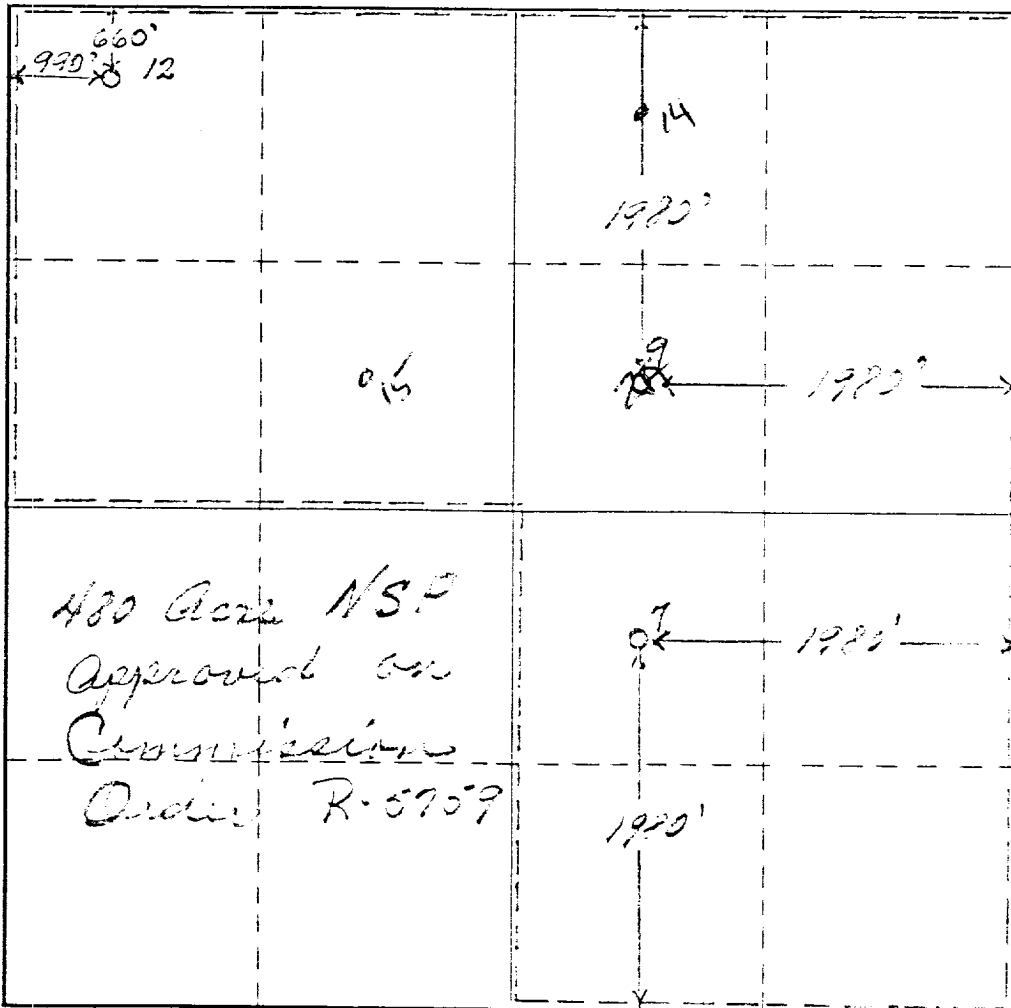 660'
990' 12
14
1980'
9
1980'
15
7
1980'
480 Acre NSP
Approved on
Commission
Order R-5759
1980'